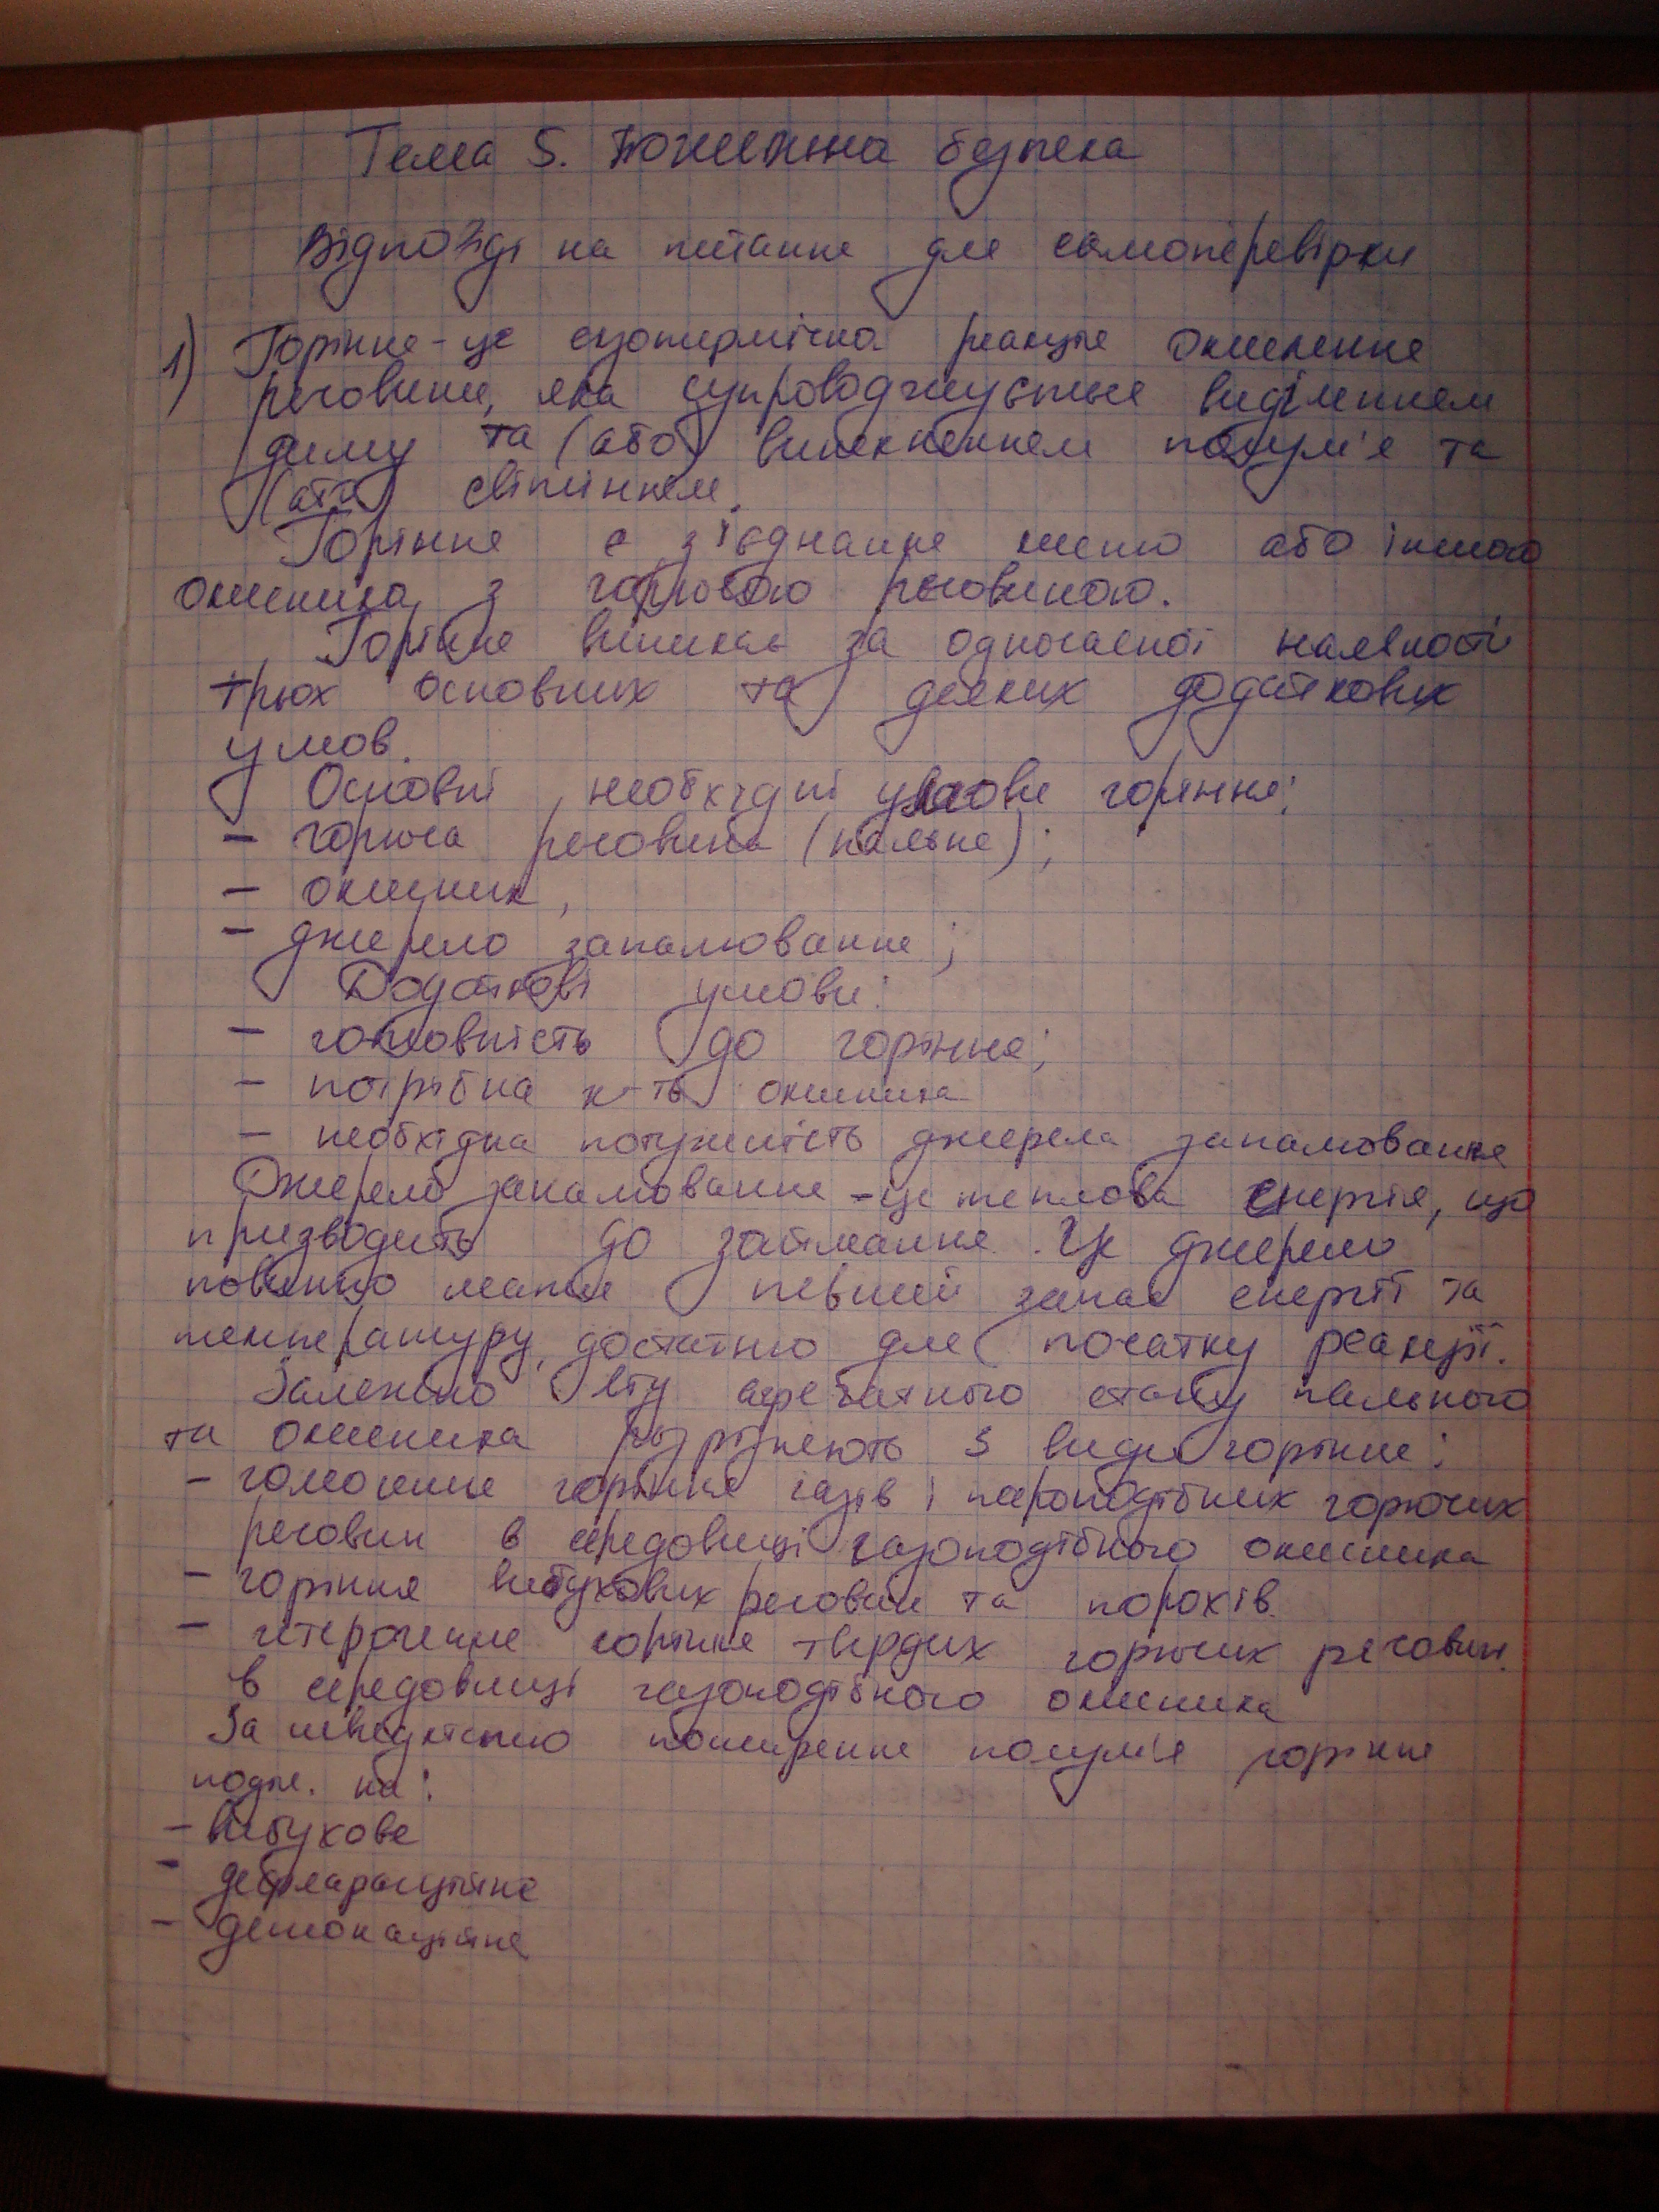 Тема 5. Пожежна безпека
Відповіді на питання для самоперевірки
1) Горіння - це екзотермічна реакція окислення
речовини, яка супроводжується виділенням
диму та (або) виникненням полум'я та
(або) світінням.
Горіння є з'єднання кисню або іншого
окисника з горючою речовиною.
Горіння виникає за одночасної наявності
трьох основних та деяких додаткових
умов.
Основні, необхідні умови горіння:
- горюча речовина (пальне);
- окисник,
- джерело запалювання;
Додаткові умови:
- готовність до горіння;
- потрібна к-ть окисника
- необхідна потужність джерела запалювання
Джерело запалювання - це теплова енергія, що
призводить до займання. Це джерело
повинно мати певний запас енергії та
температуру, достатню для початку реакції.
Залежно від агрегатного стану пального
та окисника розрізняють 3 види горіння:
- гомогенне горіння газів і пароподібних горючих
речовин в середовищі газоподібного окисника
- горіння вибухових речовин та порохів.
- гетерогенне горіння твердих горючих речовин
в середовищі газоподібного окисника
За швидкістю поширення полум'я горіння
поділ. на:
- вибухове
- дефлараційне
- детонаційне